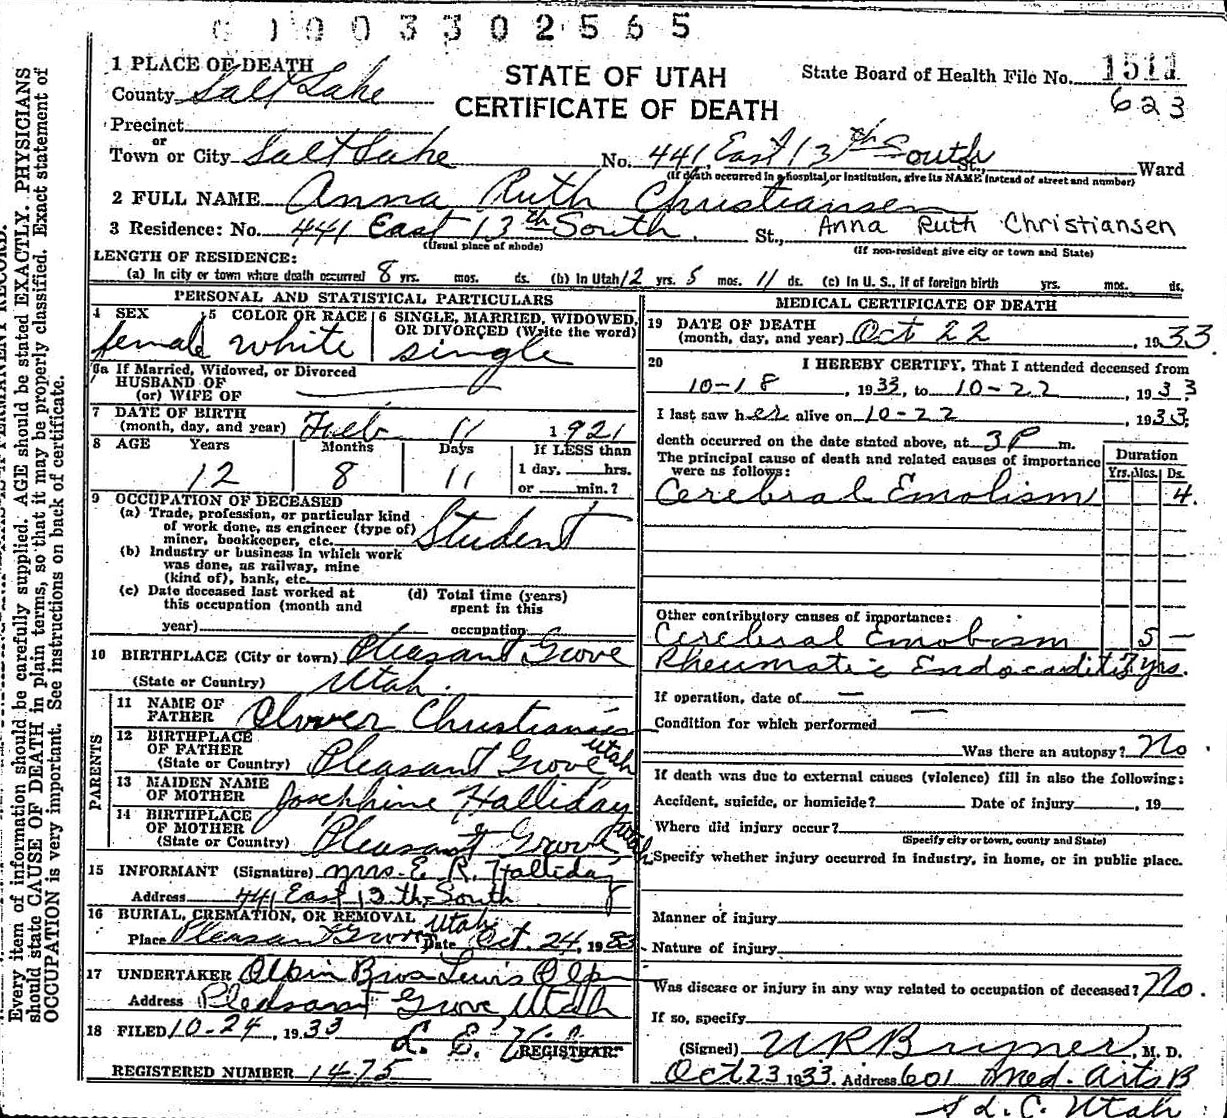 003302565
1 PLACE OF DEATH
STATE OF UTAH
CERTIFICATE OF DEATH
State Board of Health File No. 1511
623
County Salt Lake
Precinct
or
Town or City Salt Lake No. 441 East 13th South St., Ward
(If death occurred in a hospital or institution, give its NAME instead of street and number)
2 FULL NAME Anna Ruth Christiansen
3 Residence: No. 441 East 13th South St., Anna Ruth Christiansen
(Usual place of abode) (If non-resident give city or town and State)
LENGTH OF RESIDENCE:
(a) In city or town where death occurred 8 yrs. mos. ds. (b) In Utah 12 yrs. 5 mos. 11 ds. (c) In U. S., if of foreign birth yrs. mos. ds.
PERSONAL AND STATISTICAL PARTICULARS
4 SEX female
5 COLOR OR RACE white
6 SINGLE, MARRIED, WIDOWED, OR DIVORCED (Write the word) single
6a If Married, Widowed, or Divorced
HUSBAND OF
(or) WIFE OF
7 DATE OF BIRTH
(month, day, and year) Feb 11 1921
8 AGE Years Months Days If LESS than
12 8 11 1 day, hrs.
or min.?
9 OCCUPATION OF DECEASED
(a) Trade, profession, or particular kind
of work done, as engineer (type of)
miner, bookkeeper, etc. Student
(b) Industry or business in which work
was done, as railway, mine
(kind of), bank, etc.
(c) Date deceased last worked at
this occupation (month and
year)
(d) Total time (years)
spent in this
occupation
10 BIRTHPLACE (City or town) Pleasant Grove
(State or Country) Utah.
PARENTS
11 NAME OF
FATHER Christiansen
12 BIRTHPLACE
OF FATHER
(State or Country) Pleasant Grove Utah
13 MAIDEN NAME
OF MOTHER Josephine Halliday
14 BIRTHPLACE
OF MOTHER
(State or Country) Pleasant Grove Utah
15 INFORMANT (Signature) Mrs. E. R. Halliday
Address 441 East 13 th South
16 BURIAL, CREMATION, OR REMOVAL Utah
Place Pleasant Grove Date Oct. 24, 1933
17 UNDERTAKER Olpin Bros Lewis Olp
Address Pleasant Grove, Utah
18 FILED 10-24, 1933
REGISTRAR
REGISTERED NUMBER 1475
MEDICAL CERTIFICATE OF DEATH
19 DATE OF DEATH
(month, day, and year) Oct 22, 1933.
20 I HEREBY CERTIFY, That I attended deceased from
10-18, 1933, to 10-22, 1933
I last saw her alive on 10-22, 1933
death occurred on the date stated above, at 3 P m.
The principal cause of death and related causes of importance
were as follows:
Duration
Yrs. Mos. Ds.
Cerebral Emolism 4.
Other contributory causes of importance:
Cerebral Emobism 5 —
Rheumatic Endocarditis 7 yrs.
If operation, date of —
Condition for which performed —
Was there an autopsy? No.
If death was due to external causes (violence) fill in also the following:
Accident, suicide, or homicide? Date of injury, 19
Where did injury occur?
(Specify city or town, county and State)
Specify whether injury occurred in industry, in home, or in public place.
Manner of injury
Nature of injury
Was disease or injury in any way related to occupation of deceased? No.
If so, specify
(Signed) Bryner, M. D.
Oct 23 1933. Address 601 Med. Arts B
S. L. C. Utah
Every item of information should be carefully supplied. AGE should be stated EXACTLY. PHYSICIANS
should state CAUSE OF DEATH in plain terms, so that it may be properly classified. Exact statement of
OCCUPATION is very important. See instructions on back of certificate.